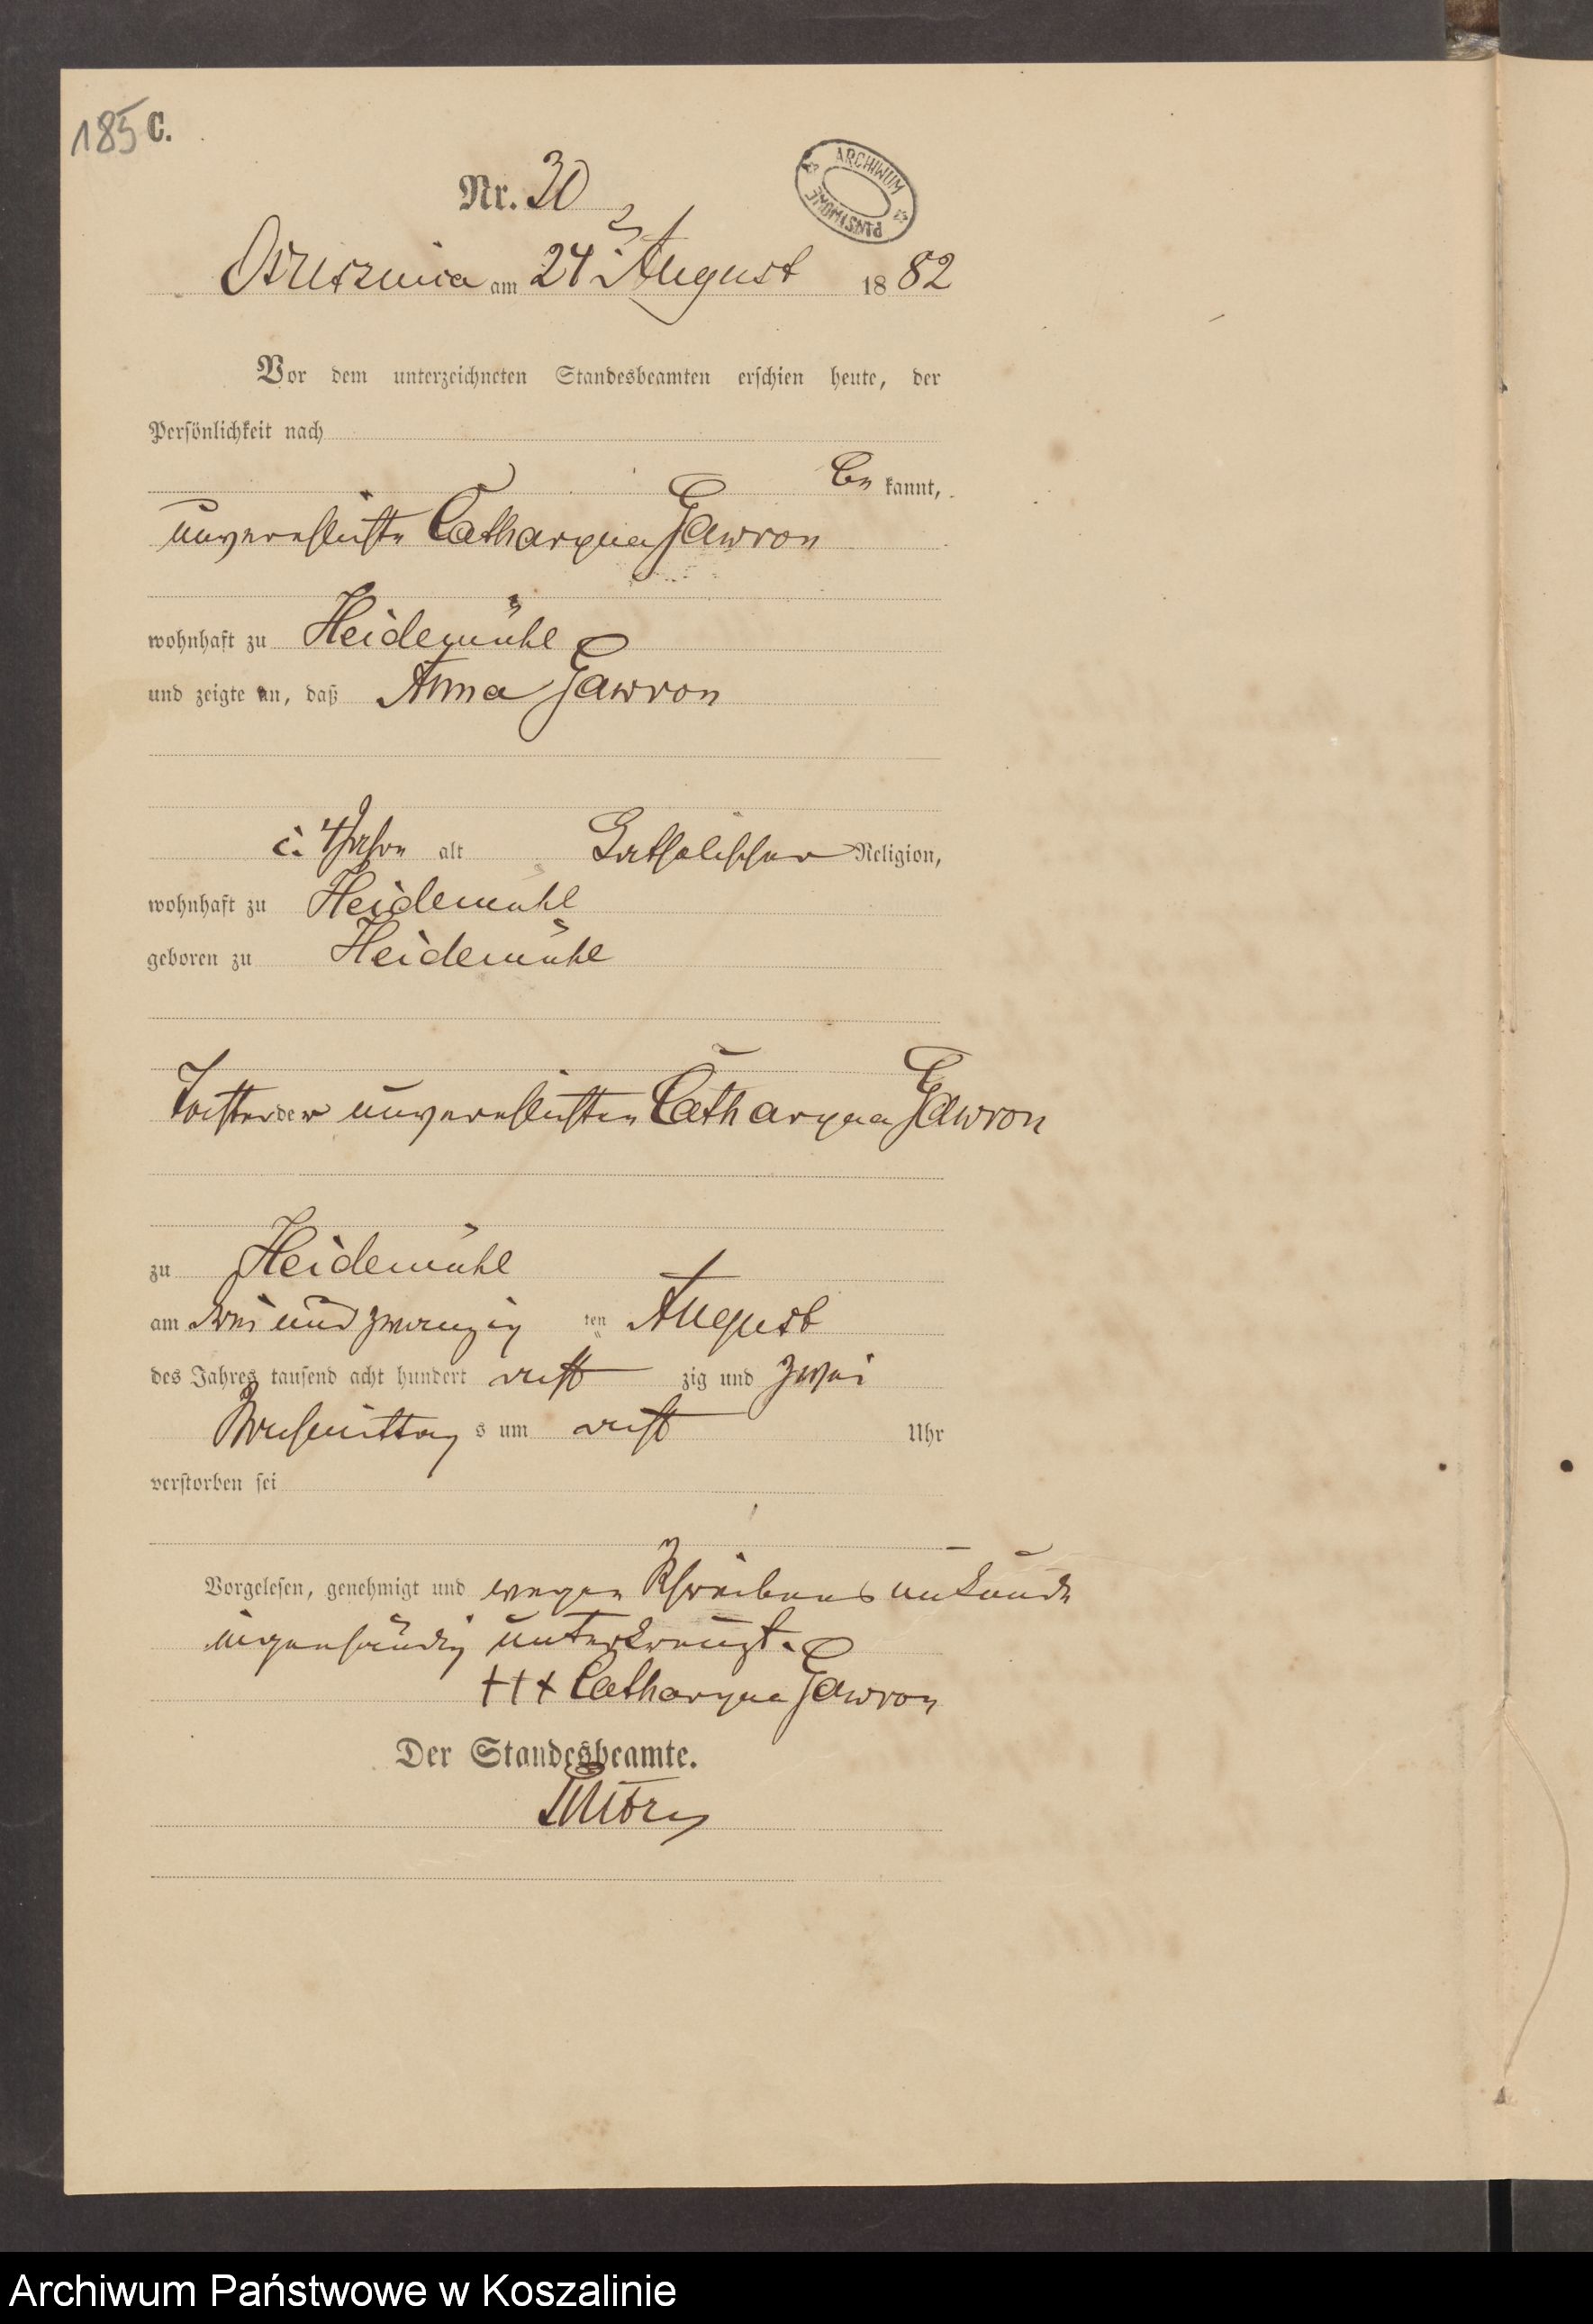 185 C.
Nr. 30
ARCHIWUM PAŃSTWOWE
am 24 August 1882
Vor dem unterzeichneten Standesbeamten erschien heute, der
Persönlichkeit nach
be kannt,
unverehlichte Catharyna Gawron
wohnhaft zu Heidemühl
und zeigte an, daß Anna Gawron
4 Jahre alt Catholischer Religion,
wohnhaft zu Heidemühl
geboren zu Heidemühl
Tochter der unverehlichten Catharyna Gawron
zu Heidemühl
am zwei und zwanzig ten August
des Jahres tausend acht hundert acht zig und zwei
Nachmittag s um acht Uhr
verstorben sei
Vorgelesen, genehmigt und wegen Schreibens unkunde
eigenhändig unterkreuzt.
+++ Catharyna Gawron
Der Standesbeamte.
Archiwum Państwowe w Koszalinie